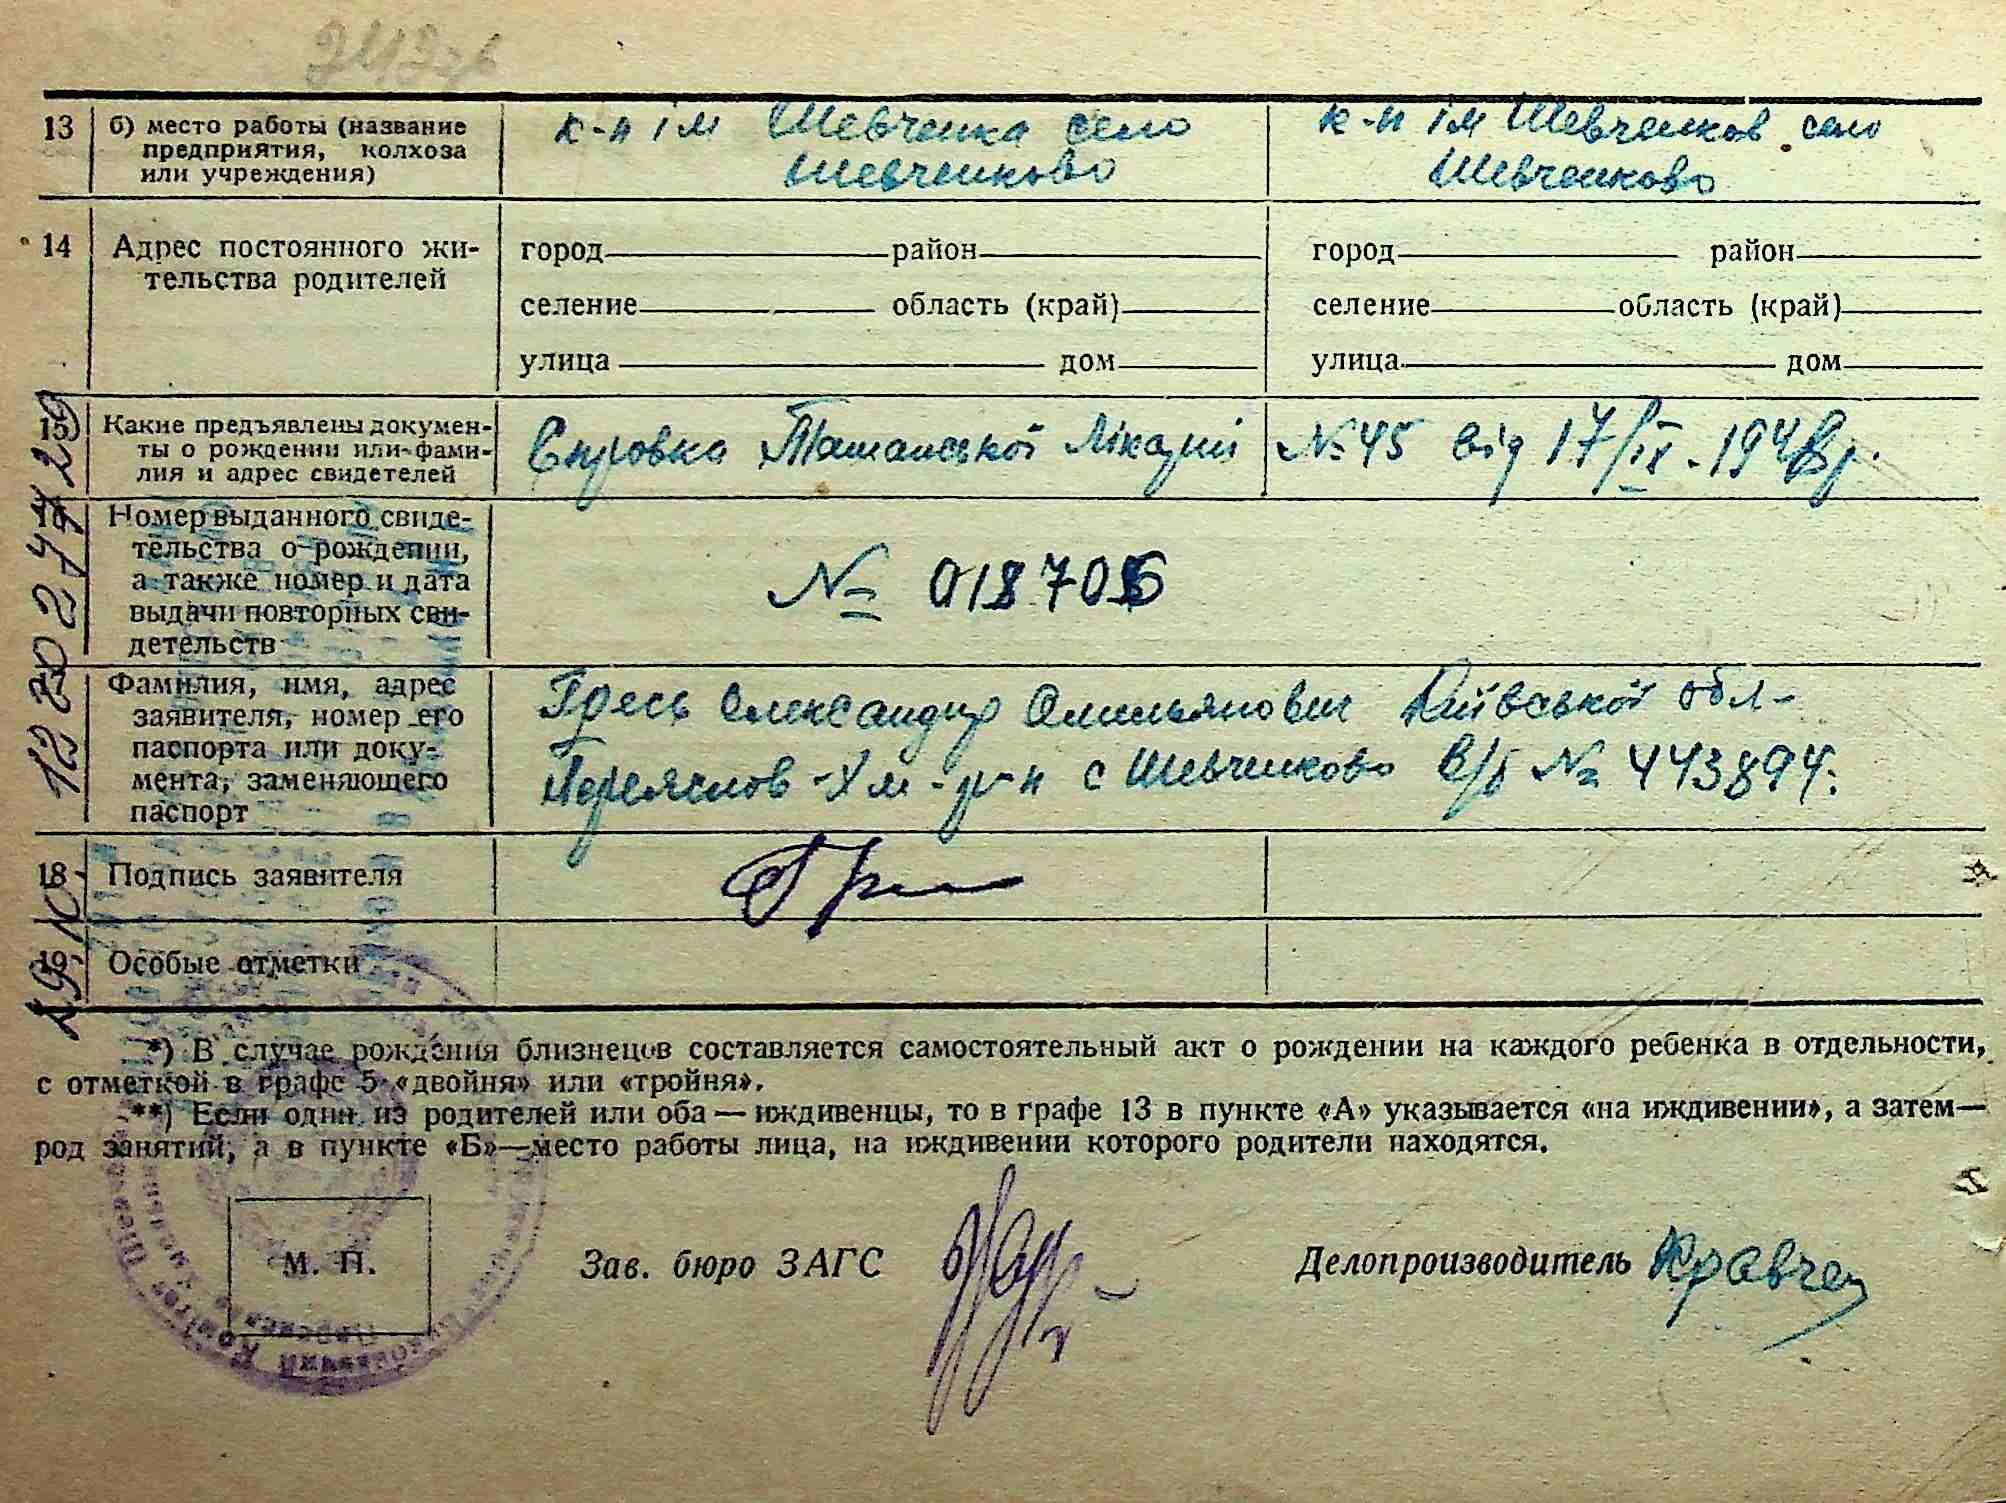 13 б) место работы (название предприятия, колхоза или учреждения)
к-п ім Шевченка село
Шевченково
к-п ім Шевченков село
Шевченково
14 Адрес постоянного жи-
тельства родителей
город район
селение область (край)
улица дом
город район
селение область (край)
улица дом
15 Какие предъявлены докумен-
ты о рождении или фами-
лия и адрес свидетелей
Справка Ташанської Лікарні № 45 від 17/IX-1948 р.
Номер выданного свиде-
тельства о рождении,
а также номер и дата
выдачи повторных сви-
детельств
№ 018706
Фамилия, имя, адрес
заявителя, номер его
паспорта или доку-
мента, заменяющего
паспорт
Гресь Олександр Омельянович Київської обл-
Переяслов-Хм-р-н с Шевченково В/б № 443894.
18 Подпись заявителя
19 Особые отметки
*) В случае рождения близнецов составляется самостоятельный акт о рождении на каждого ребенка в отдельности,
с отметкой в графе 5 «двойня» или «тройня».
**) Если один из родителей или оба — иждивенцы, то в графе 13 в пункте «А» указывается «на иждивении», а затем—
род занятий, а в пункте «Б»—место работы лица, на иждивении которого родители находятся.
М. П.
Зав. бюро ЗАГС
Делопроизводитель Кравчен